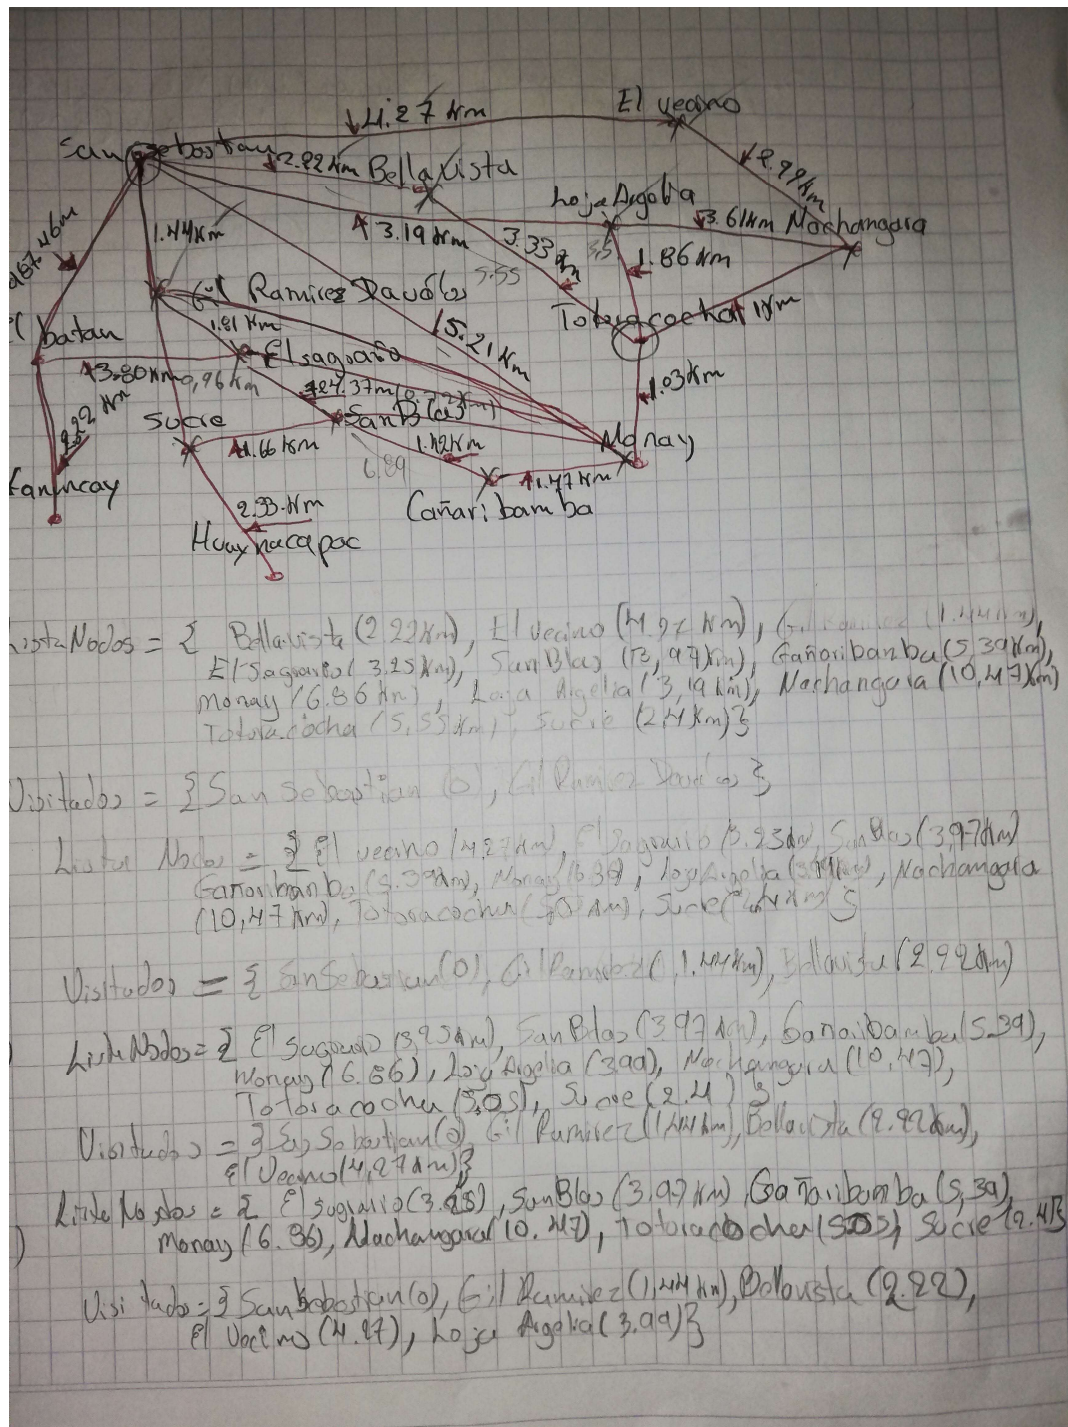 El vecino
4.27 Km
San sebastian
2.22 Km
Bellavista
Loja Argelia
3.61Km Machangara
1.44Km
3.19 Km
3.33
5.55
1.86Km
Gil Ramirez Daválos
Totoracocha
1.81 Km
5.21 Km
El batan
El sagrario
1.03Km
3.80Km
0,96Km
Sucre
San Blas
Monay
1.66 Km
1.42Km
6.89
1.47Km
Cañaribamba
2.33 Km
Huaynacapac
ListaNodos = { Bellavista (2.22Km), El vecino (4.27 Km), Gil Ramirez (1.44Km),
El Sagrario (3.25Km), San Blas (3,97Km), Cañaribanba (5,39Km),
Monay (6.86 Km), Loja Argelia (3,19 Km), Machangara (10,47Km)
Totoracocha (5,55 Km), Sucre (2,4Km)}
Visitados = {San Sebastian (0), Gil Ramirez Davalos }
Listar Nodos = { El vecino (4,27Km), El Sagrario (3.25Km, San Blas (3,97Km)
Cañaribanba (5.39Km), Monay (6.86, Loja Argelia, Machangara
(10,47 Km), Totoracocha, Sucre (2,4 Km) }
Visitados = { San Sebastian (0), Gil Ramirez (1.44Km), Bellavista (2.22Km)
ListaNodos = { El Sagrario (3,25Km), San Blas (3.97Km), Cañaribamba (5.39),
Monay (6.86), Loja Argelia (3,99), Machangara (10,47),
Totoracocha (5,05), Sucre (2.4) }
Visitados = { San Sebastian (0), Gil Ramirez (1,44Km), Bellavista (2.22Km),
El Vecino (4,27Km)}
Lista Nodos = { El sagrario (3.25), San Blas (3.97 Km), Cañaribamba (5,39),
Monay (6.86), Machangara (10.47), Totoracocha (5,05), Sucre (2.4)}
Visitados = { San Sebastian (0), Gil Ramirez (1,44 Km), Bellavista (2.22),
El Vecino (4.27), Loja Argelia (3,99)}